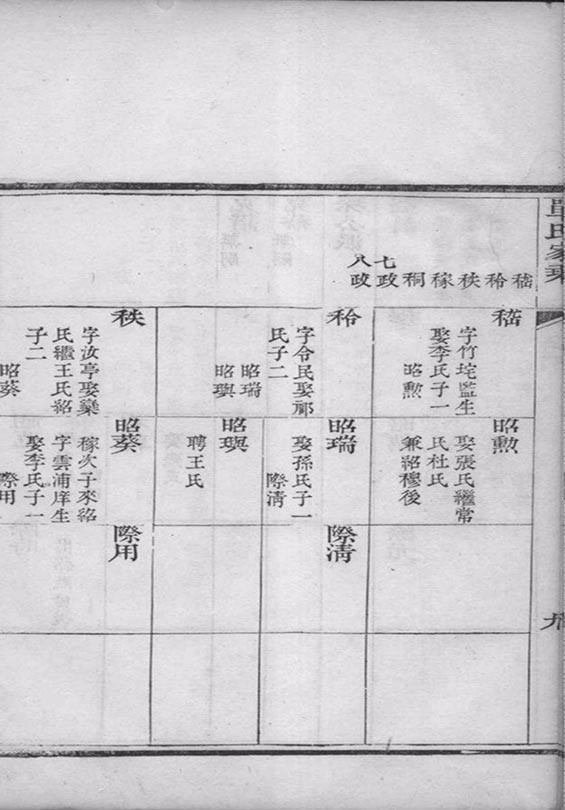 單氏家乘
嵇
秢
秩
稼
秱
七政
八政
嵇
字竹垞監生
娶李氏子一
昭勲
昭勲
娶張氏繼常
氏杜氏
兼紹穆後
秢
字令民娶鄺
氏子二
昭瑞
昭璵
昭瑞
娶孫氏子一
際清
際清
昭璵
聘王氏
秩
字汝亭娶欒
氏繼王氏紹
子二
昭葵
昭葵
稼次子來紹
字雲浦庠生
娶李氏子一
際用
際用